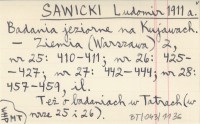 SAWICKI Ludomir 1911 a.
Badania jeziorne na Kujawach.
— Ziemia (Warszawa) 2,
nr 25: 410-411; nr 26: 425-
-427; nr 27: 442-444; nr 28:
457-459, il.
Też o badaniach w Tatrach (w
nrze 25 i 26).
MT
BT/043/1136